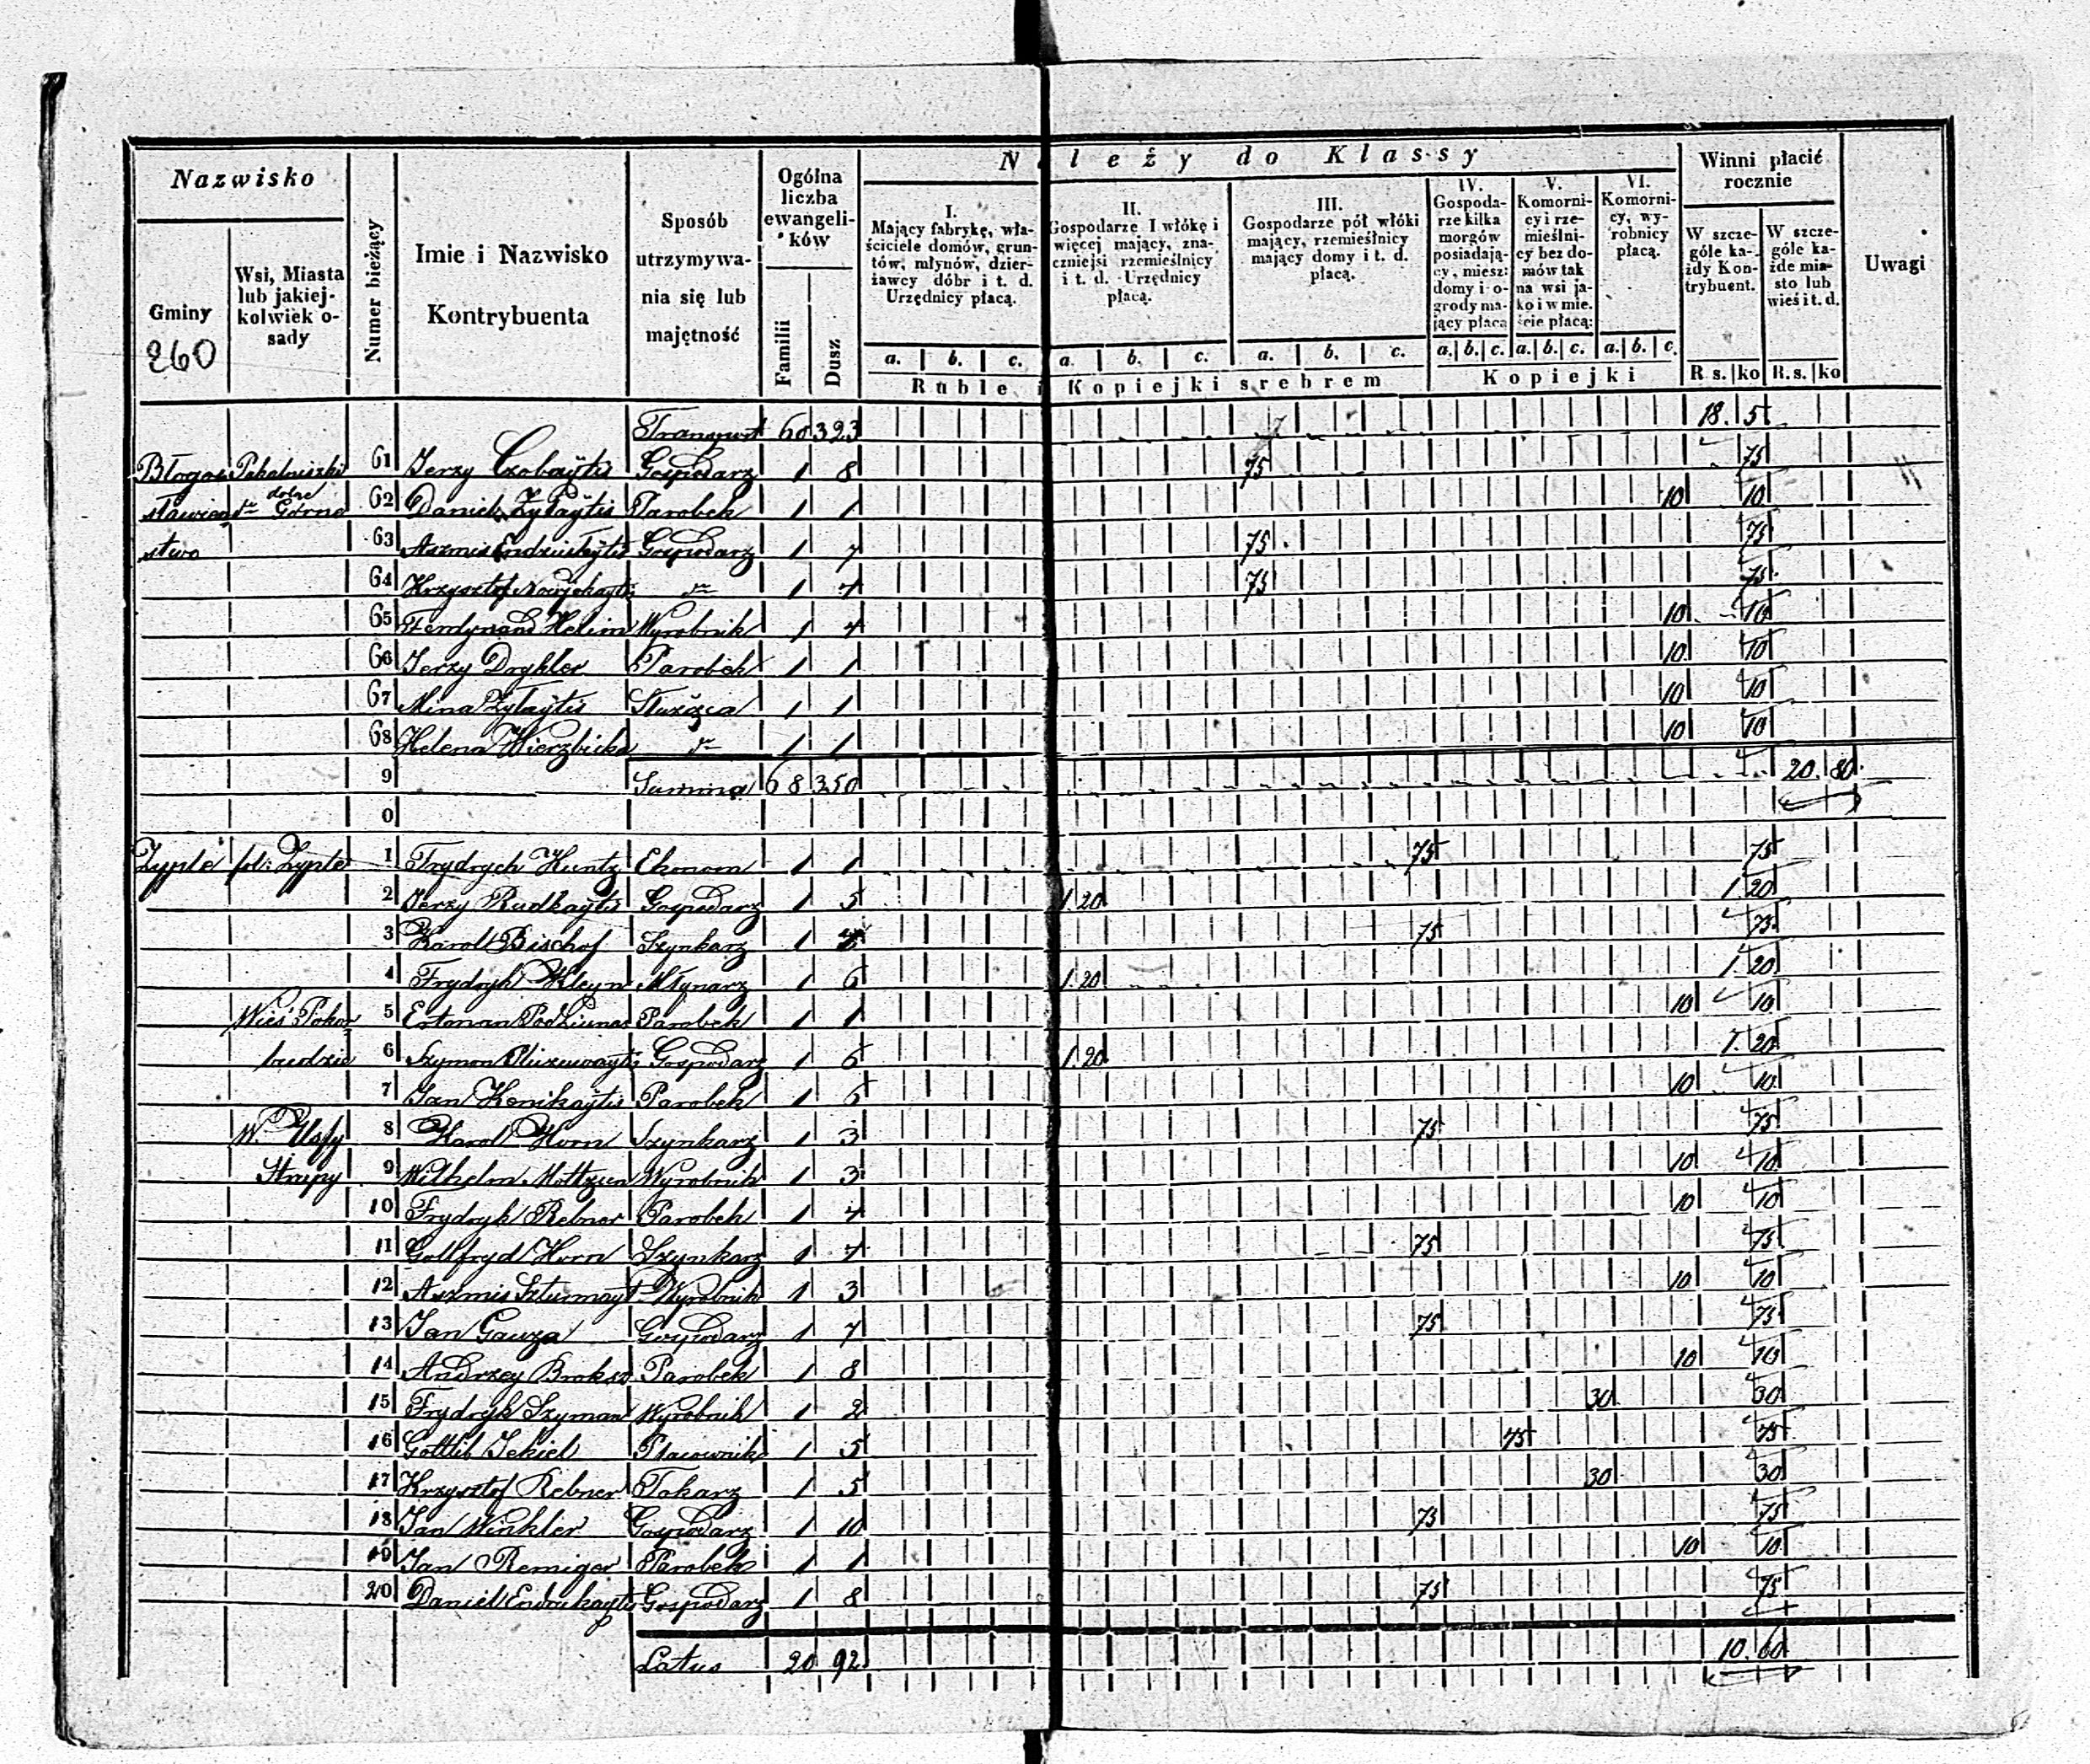 Należy do Klassy
Nazwisko
Gminy
260
Wsi, Miasta lub jakiejkolwiek osady
Numer bieżący
Imie i Nazwisko Kontrybuenta
Sposób utrzymywania się lub majętność
Ogólna liczba ewangelików
Familii
Dusz
I. Mający fabrykę, właściciele domów, gruntów, młynów, dzierżawcy dóbr i t. d. Urzędnicy płacą.
II. Gospodarze I włókę i więcej mający, znaczniejsi rzemieślnicy i t. d. Urzędnicy płacą.
III. Gospodarze pół włóki mający, rzemieślnicy mający domy i t. d. płacą.
IV. Gospodarze kilka morgów posiadający, miesz: domy i ogrody mający płacą
V. Komornicy i rzemieślnicy bez domów tak na wsi jako i w mieście płacą:
VI. Komornicy, wyrobnicy płacą.
Winni płacić rocznie
W szczególe każdy Kontrybuent.
W szczególe każde miasto lub wieś i t. d.
Uwagi
a. b. c. a. b. c. a. b. c. a. b. c. a. b. c. a. b. c.
Ruble i Kopiejki srebrem
Kopiejki
R s. ko R. s. ko
Transport 60 323 18. 5
61 Jerzy Czobaÿtis Gospodarz 1 8 75 75
62 Daniel Zylaÿtis Parobek 1 1 10 10
63 Aszmis Gospodarz 1 7 75 75
64 Krzysztof 1 4 75 75
65 Ferdynand Helim Wyrobnik 1 4 10 10
66 Jerzy Drykler Parobek 1 1 10 10
67 Mina Zylaÿtis Służąca 1 1 10 10
68 Helena Wierzbicka 1 1 10 10
9 Summa 68 350 20. 80
0
Zyple fol: Zyple 1 Frydrych Kuntz Ekonom 1 1 75 75
2 Jerzy Rudkaÿtis Gospodarz 1 5 1.20 1. 20
3 Karol Bischof Szynkarz 1 75 75
4 Frydryk Kleyn Młynarz 1 6 1.20 1. 20
Wieś 5 Parobek 1 1 10 10
6 Szymon Gospodarz 1 6 1.20 1. 20
7 Jan Konikaÿtis Parobek 1 6 10 10
8 Karol Horn Szynkarz 1 3 75 75
9 Wilhelm Wyrobnik 1 3 10 10
10 Frydryk Rebner Parobek 1 4 10 10
11 Gottfryd Horn Szynkarz 1 7 75 75
12 Aszmis Szturmayt Wyrobnik 1 3 10 10
13 Jan Gauza Gospodarz 1 7 75 75
14 Andrzey Broksz Parobek 1 8 10 10
15 Frydryk Szyman Wyrobnik 1 2 30 30
16 Gottlib Jekiel 1 5 75 75
17 Krzysztof Rebner Tokarz 1 5 30 30
18 Jan Winkler Gospodarz 1 10 75 75
19 Jan Remiger Parobek 1 1 10 10
20 Daniel Endrukaytis Gospodarz 1 8 75 75
Latus 20 92 10. 60